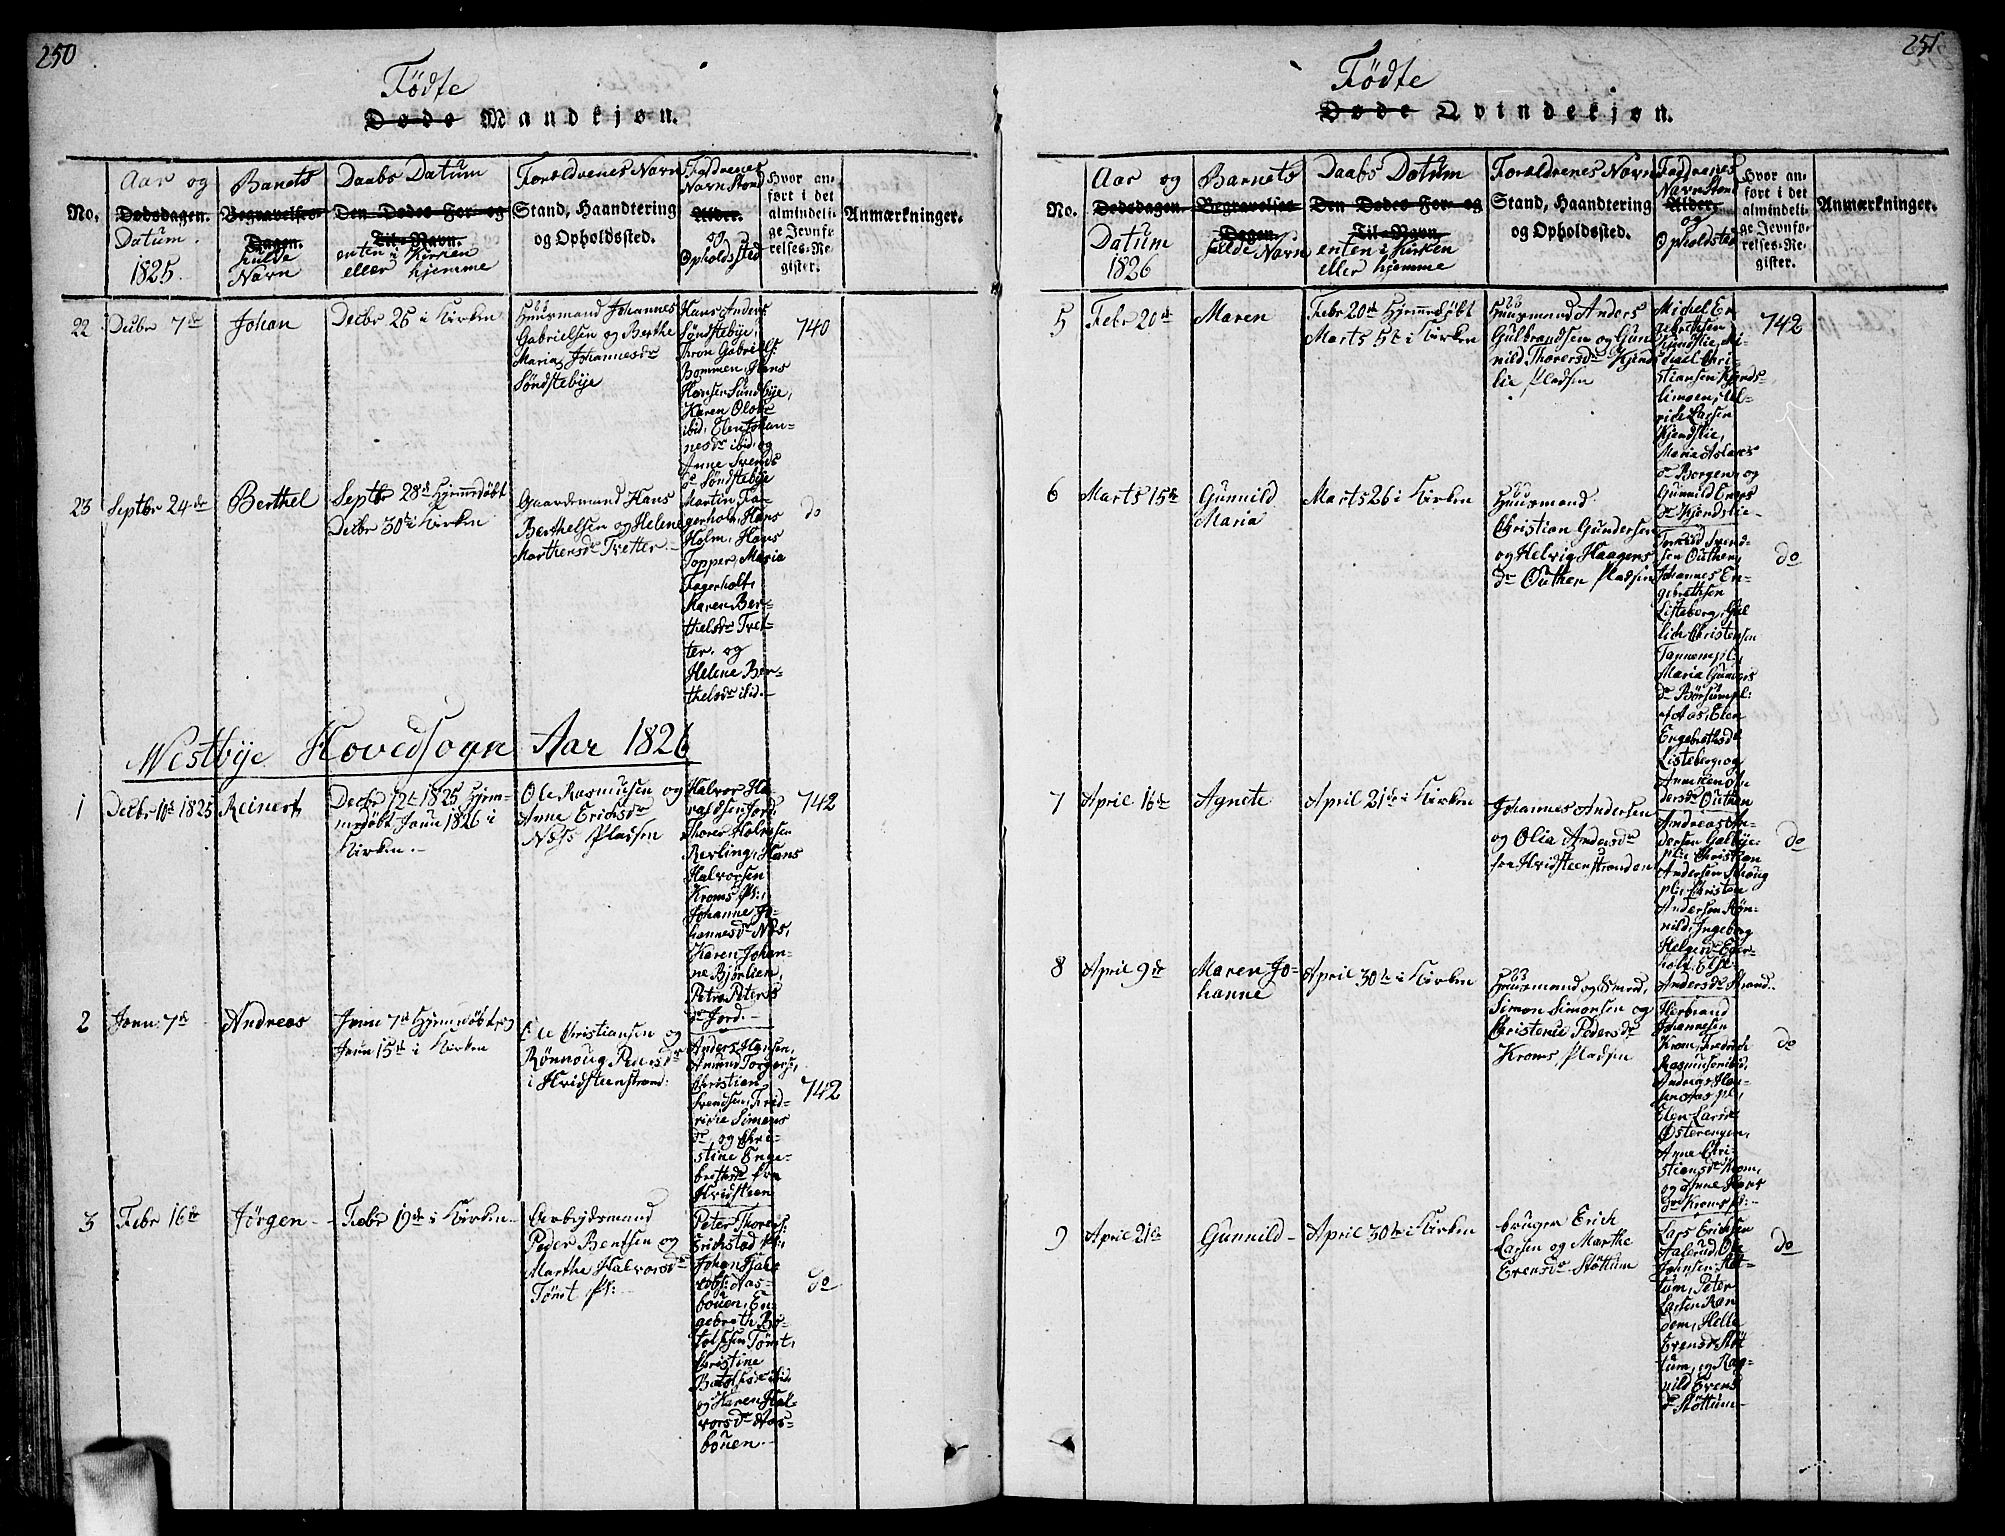 250
Födte
Døde Mandkjøn.
No.
Aar og
Dødsdagen.
Datum.
1825.
Barnets
Begravelses-
Dagen.
fulde
Navn
Daabs Datum
Den Dødes For- og
Til-Navn.
enten i Kirken
eller hjemme
Forældrenes Navn
Stand, Haandtering
og Opholdssted.
Faddrenes
Navn Stand
Alder.
og
Opholdsted
Hvor an-
ført i det
almindeli-
ge Jevnfø-
relses-Re-
gister.
Anmærkninger.
22
Decbr 7de
Johan
Decbr 26 i Kirken
Huusmand Johannes
Gabrielsen og Berthe
Maria Johannesdr
Söndstebÿe
Hans Anders
Söndstebÿe,
Tron Gabriels:
Bommen, Hans
Hansen Sundbÿe,
Karen Olsdr
ibid, Elen Johan-
nesdr ibid, og
Anne Svends
dr Söndstebÿe
740
23
Septbr 24de
Berthel
Septbr 28de Hjemmedöbt
Decbr 30te i Kirken
Gaardemand Hans
Berthelsen og Helene
Marthensdr Tretter.-
Martin Fa-
gerholt, Hans
Holm, Hans
Topper, Maria
Fagerholt,
Karen Ber-
thelsdr Tret-
ter. og
Helene Ber-
thelsdr ibid.-
do
Westbÿe Hovedsogn Aar 1826
1
Decbr 10de 1825
Reinert
Decbr 12te 1825 Hjem-
medöbt Janu 1826 i
Kirken.-
Ole Rasmusen og
Anne Erichsdr
Næss Pladsen
Halvor Ha-
raldsen Jord,
Thorer Holmsen
Revling, Hans
Halvorsen
Kroms Pl:,
Johanne Jo-
hannesdr Næs,
Karen Johan-
ne Bjørlien,
Petra Peters
dr Jord.-
742
2
Janu: 7de
Andreas
Janu 7de Hjemmedöbt og
Janu 15de i Kirken
Ole Christiansen og
Rönnoug Pedersdr
i Hvidsteenstrand:
Anders Hansen,
Amund Torgers:,
Christian
Svendsen, Fred-
ricke Simens
dr, og Chri-
stine Enge-
bretsdr fra
Hvidsteen
742
3
Febr 16de
Jörgen
Febr 19de i Kirken
Arbeÿdsmand
Peder Bentsen og
Marthe Halvorsdr
Tömt Pl:
Peter Thorers:
Erichstad Pl:,
Johan
Aas-
bouen, En-
gebreth Bo-
Tömt,
Christine
ibid
og Karen Hal-
vorsdr Aas-
bouen.-
do
251
Födte
Døde Qvindekjøn.
No.
Aar og
Dødsdagen.
Datum
1826
Barnets
Begravelses-
Dagen.
fulde Navn
Daabs Datum
Den Dødes For- og
Til-Navn.
enten i Kirken
eller hjemme
Forældrenes Navn
Stand, Haandtering
og Opholdssted.
Faddrenes
Navn Stand
Alder.
og
Opholdsted
Hvor an-
ført i det
almindeli-
ge Jevnfø-
relses-Re-
gister.
Anmærkninger.
5
Febr 20de
Maren
Febr 20de Hjemmedöbt
Marts 5te i Kirken
Huusmand Anders
Gulbrandsen og Gun-
nild Thorersdr Kjends-
lie Pladsen
Michel En-
gebrethsen
Kjendslie, Mi-
chael Chri-
stiansen Kjends-
limoen, Ul-
rich Larsen
Kjendslie,
Maria Aslaks
dr Borgen, og
Gunnild Evens
dr Kjendslie-
742
6
Marts 15de
Gunnild
Maria
Marts 26 i Kirken
Huusmand
Christian Gundersen
og Helvig Haagens
dr Outhen Pladsen
Torkild Svend-
sen Outhen,
Johannes En-
gebrethsen
Listeberg, Gul-
lich Christensen
Maria Gunders
dr
af Aas, Elen
Engebrethsdr
Listeberg, og
Anniken An-
dersdr Outhen
do
7
April 16de
Agnete
April 21de i Kirken
Johannes Andersen
og Olia Andersdr
fra Hvidsteenstranden
Andreas An-
dersen Galbÿe
pl:, Christian
Andersen Schoug
pl:, Christen
Andersen Rön-
nild, Ingeborg
Helgendr Eger-
holt, Else
Andersdr Strand.
do
8
April 9de
Maren Jo-
hanne
April 30te i Kirken
Huusmand og Smed,
Simon Simonsen og
Christense Pedersdr
Kroms Pladsen
Herbrand
Johannesen
Krom, Fredrich
Rasmusen ibid,
Andreas Han-
sen Aas pl:,
Elen Larsdr
Österengen,
Anne Chri-
stiansdr Krom,
og Anne Hans
dr Kroms pl:
do
9
April 21de
Gunnild
April 30te i Kirken
bruger Erich
Larsen og Marthe
Evensdr Støttum
Lars Erichsen
Aalerud, Ole
Johnsen Støt-
tum, Peter
Larsen Ran-
dem, Helle
Evensdr Støt-
tum, og Rag-
nild Evens
dr Støttum
do